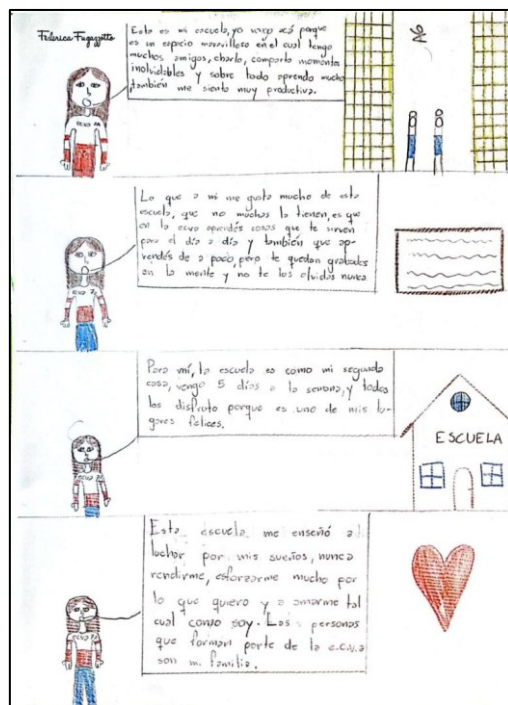 Federica Fugazzotto
Esta es mi escuela, yo vengo acá porque
es un espacio maravilloso en el cual tengo
muchos amigos, charlo, comparto momentos
inolvidables y sobre todo aprendo mucho
también me siento muy productiva.
Lo que a mi me gusta mucho de esta
escuela, que no muchas la tienen, es que
en la ecva aprendés cosas que te sirven
para el día a día y también que ap-
rendés de a poco, pero te quedan grabadas
en la mente y no te los olvidas nunca
Para mí, la escuela es como mi segunda
casa, vengo 5 días a la semana, y todos
los disfruto porque es uno de mis lu-
gares felices.
ESCUELA
Esta escuela me enseñó a
luchar por mis sueños, nunca
rendirme, esforzarme mucho por
lo que quiero y a amarme tal
cual como soy. Las personas
que forman parte de la e.c.v.a
son mi familia.